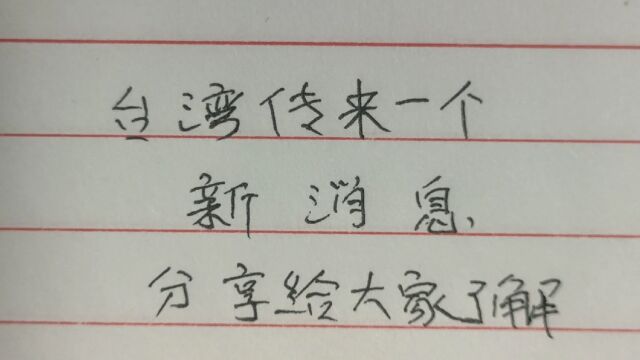 台湾传来一个
新消息,
分享给大家了解